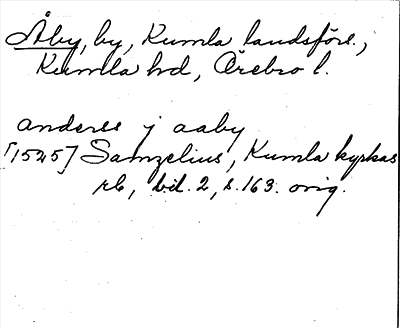 Åby, by, Kumla landsförs.,
Kumla hd, Örebro l.
anders j aaby
[1525] Samzelius, Kumla kyrkas
rb, bil. 2, s. 163. orig.